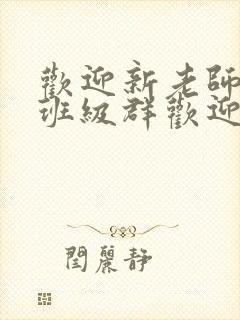 歡迎新老師
班級群歡迎
閆麗靜